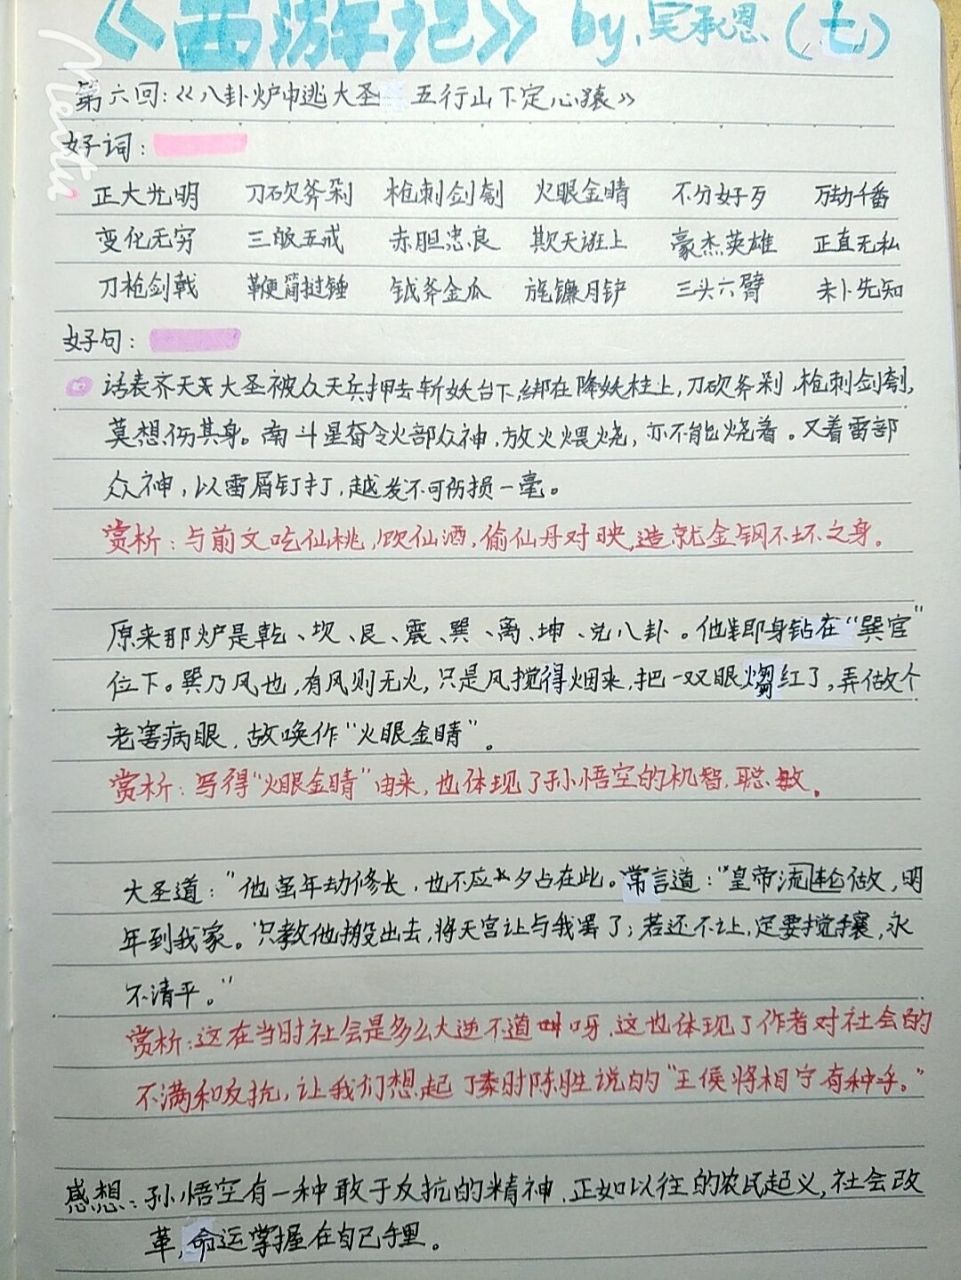 《西游记》 by.吴承恩 (七)
Meitu
第六回:《八卦炉中逃大圣 五行山下定心猿》
好词:
正大光明 刀砍斧剁 枪刺剑刳 火眼金睛 不分好歹 万劫千番
变化无穷 三皈五戒 赤胆忠良 欺天诳上 豪杰英雄 正直无私
刀枪剑戟 鞭简挝锤 钺斧金瓜 旄镰月铲 三头六臂 未卜先知
好句:
话表齐天大圣被众天兵押去斩妖台下,绑在降妖柱上,刀砍斧剁,枪刺剑刳,
莫想伤其身。南斗星奋令火部众神,放火煨烧,亦不能烧着。又着雷部
众神,以雷屑钉打,越发不可伤损一毫。
赏析:与前文吃仙桃,饮仙酒,偷仙丹对映,造就金钢不坏之身。
原来那炉是乾、坎、艮、震、巽、离、坤、兑八卦。他即身钻在“巽宫”
位下。巽乃风也,有风则无火,只是风搅得烟来,把一双眼熥红了,弄做个
老害病眼,故唤作“火眼金睛”。
赏析:写得“火眼金睛”由来,也体现了孙悟空的机智,聪敏。
大圣道:“他虽年劫修长,也不应久占在此。常言道:“皇帝流轮做,明
年到我家。只教他搬出去,将天宫让与我罢了;若还不让,定要搅攘,永
不清平。”
赏析:这在当时社会是多么大逆不道呀,这也体现了作者对社会的
不满和反抗,让我们想起了秦时陈胜说的“王侯将相宁有种乎。”
感想:孙悟空有一种敢于反抗的精神,正如以往的农民起义,社会改
革,命运掌握在自己手里。